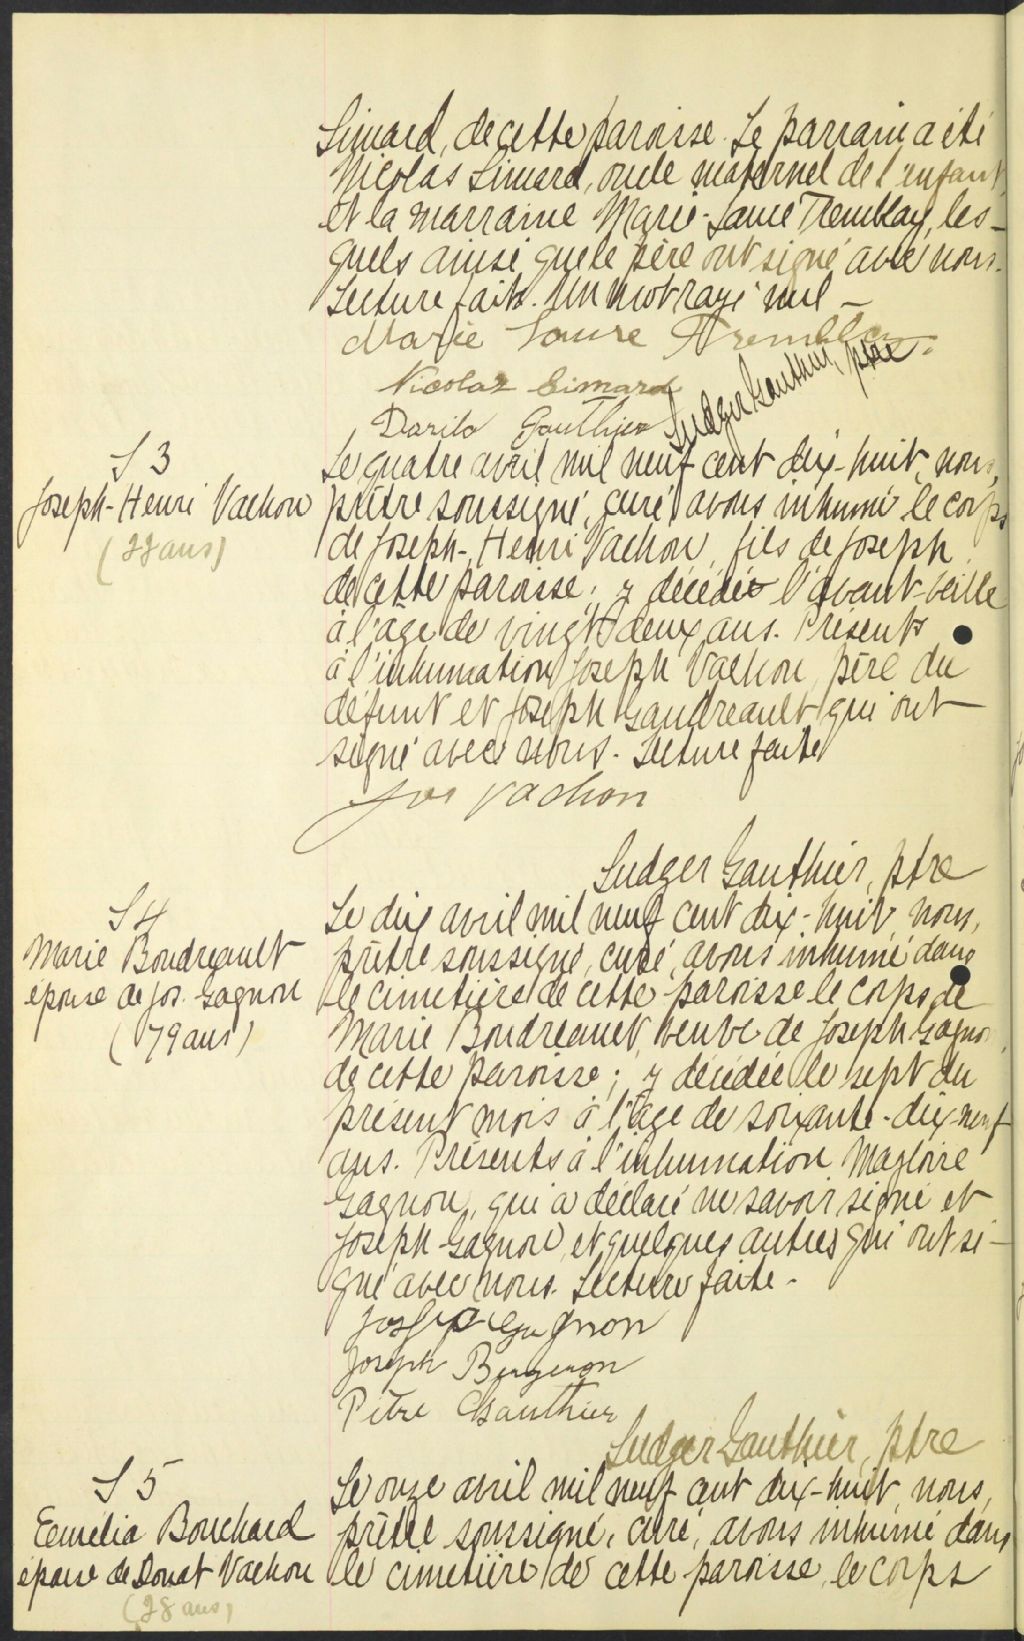 Simard, de cette paroisse. Le parrain a été
Nicolas Simard, oncle maternel de l'enfant,
et la marraine Marie-Laure Tremblay, les-
quels ainsi que le père ont signé avec nous.
Lecture faite. Un mot rayé nul -
Marie Laure Tremblay.
Nicolas Simard
Ludger Gauthier, ptre
Gauthier
S 3
Joseph-Henri Vachon
(22 ans)
Le quatre avril mil neuf cent dix-huit, nous,
prêtre soussigné, curé, avons inhumé le corps
de Joseph-Henri Vachon, fils de Joseph,
de cette paroisse; y décédé l'avant-veille
à l'âge de vingt-deux ans. Présents
à l'inhumation Joseph Vachon, père du
défunt et Joseph Gaudreault qui ont
signé avec nous. Lecture faite
Jos Vachon
Ludger Gauthier, ptre
S 4
Marie Boudreault
épouse de Jos. Gagnon
(79 ans)
Le dix avril mil neuf cent dix-huit, nous,
prêtre soussigné, curé, avons inhumé dans
le cimetière de cette paroisse le corps de
Marie Boudreault, veuve de Joseph Gagnon,
de cette paroisse; y décédée le sept du
présent mois à l'âge de soixante-dix-neuf
ans. Présents à l'inhumation Magloire
Gagnon, qui a déclaré ne savoir signé et
Joseph Gagnon, et quelques autres qui ont si-
gné avec nous. Lecture faite -
Gagnon
Joseph Bergeron
Pitre Gauthier
Ludger Gauthier, ptre
S 5
Eemélia Bouchard
épouse de Donat Vachon
(28 ans)
Le onze avril mil neuf cent dix-huit, nous,
prêtre soussigné, curé, avons inhumé dans
le cimetière de cette paroisse, le corps